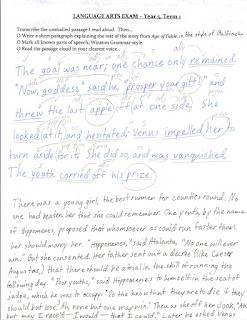 LANGUAGE ARTS EXAM – Year 5, Term 1
Transcribe the unstudied passage I read aloud. Then...
O Write a short paragraph explaining the rest of the story from Age of Fable, in the style of
O Mark all known parts of speech, Winston Grammar-style.
O Read the passage aloud in your clearest voice.
The goal was near; one chance only remained.
"Now, goddess," said he, "prosper your gift!" and
threw the last apple off at one side. She
looked at it, and hesitated; Venus impelled her to
turn aside for it. She did so, and was vanquished.
The youth carried off his prize.
There was a young girl, the best runner for countries round. No
one had beaten her that she could remember. One youth, by the name
of Hippomenes, proposed that whomsoever as could run faster than her
should marry her. "Hippomenes," said Atalanta, "No one will ever
win." But she consented. Her father sent out a decree (like Caesar
Augustus,) that there should be a trial in the skill of running the
following day. "Poor youths," said Hippomenes to himself in the seat of
judge, which he was to occupy. "Do they know that they are to die if they
should but lose? Ah, none but one may win." Then as she off her cloak, "Ah
but may I race? — I would — that I could." Later he asked Venus